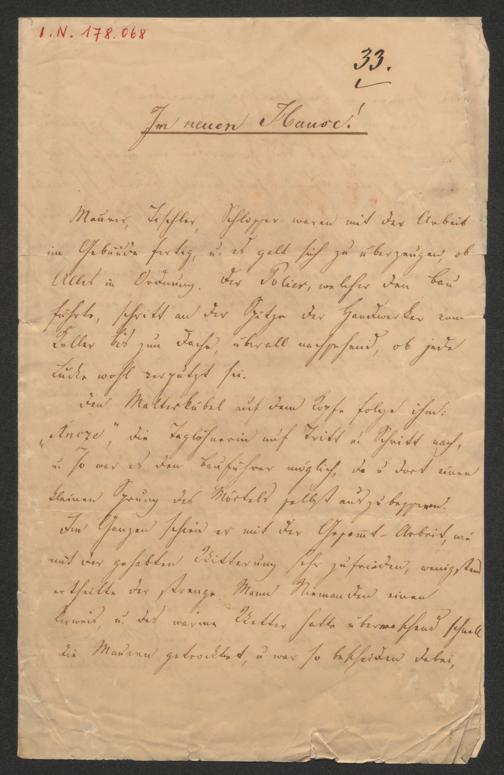 I.N. 178.068
33.
Im neuen Hause!
Maurer, Tischler, Schlosser waren mit der Arbeit
im Gebäude fertig, u. es galt sich zu überzeugen, ob
Alles in Ordnung. Der Polier, welcher den Bau
führte, schritt an der Spitze der Handwerker vom
Keller bis zum Dache, überall nachsehend, ob jede
Lücke wohl verputzt sei.
Den Malterkübel auf dem Kopfe folgte ihm:
„Ancze“, die Taglöhnerin auf Tritt u. Schritt nach,
u. so war es dem Bauführer möglich, da u dort einen
kleinen Sprung des Mörtels selbst auszubessern.
Im Ganzen schien er mit der Gesammt-Arbeit, wie
mit der gehabten Witterung sehr zufrieden, wenigstens
ertheilte der strenge Mann Niemanden einen
Verweis, u. das warme Wetter hatte überraschend schnell
die Mauern getrocknet, u war so bescheiden dabei,